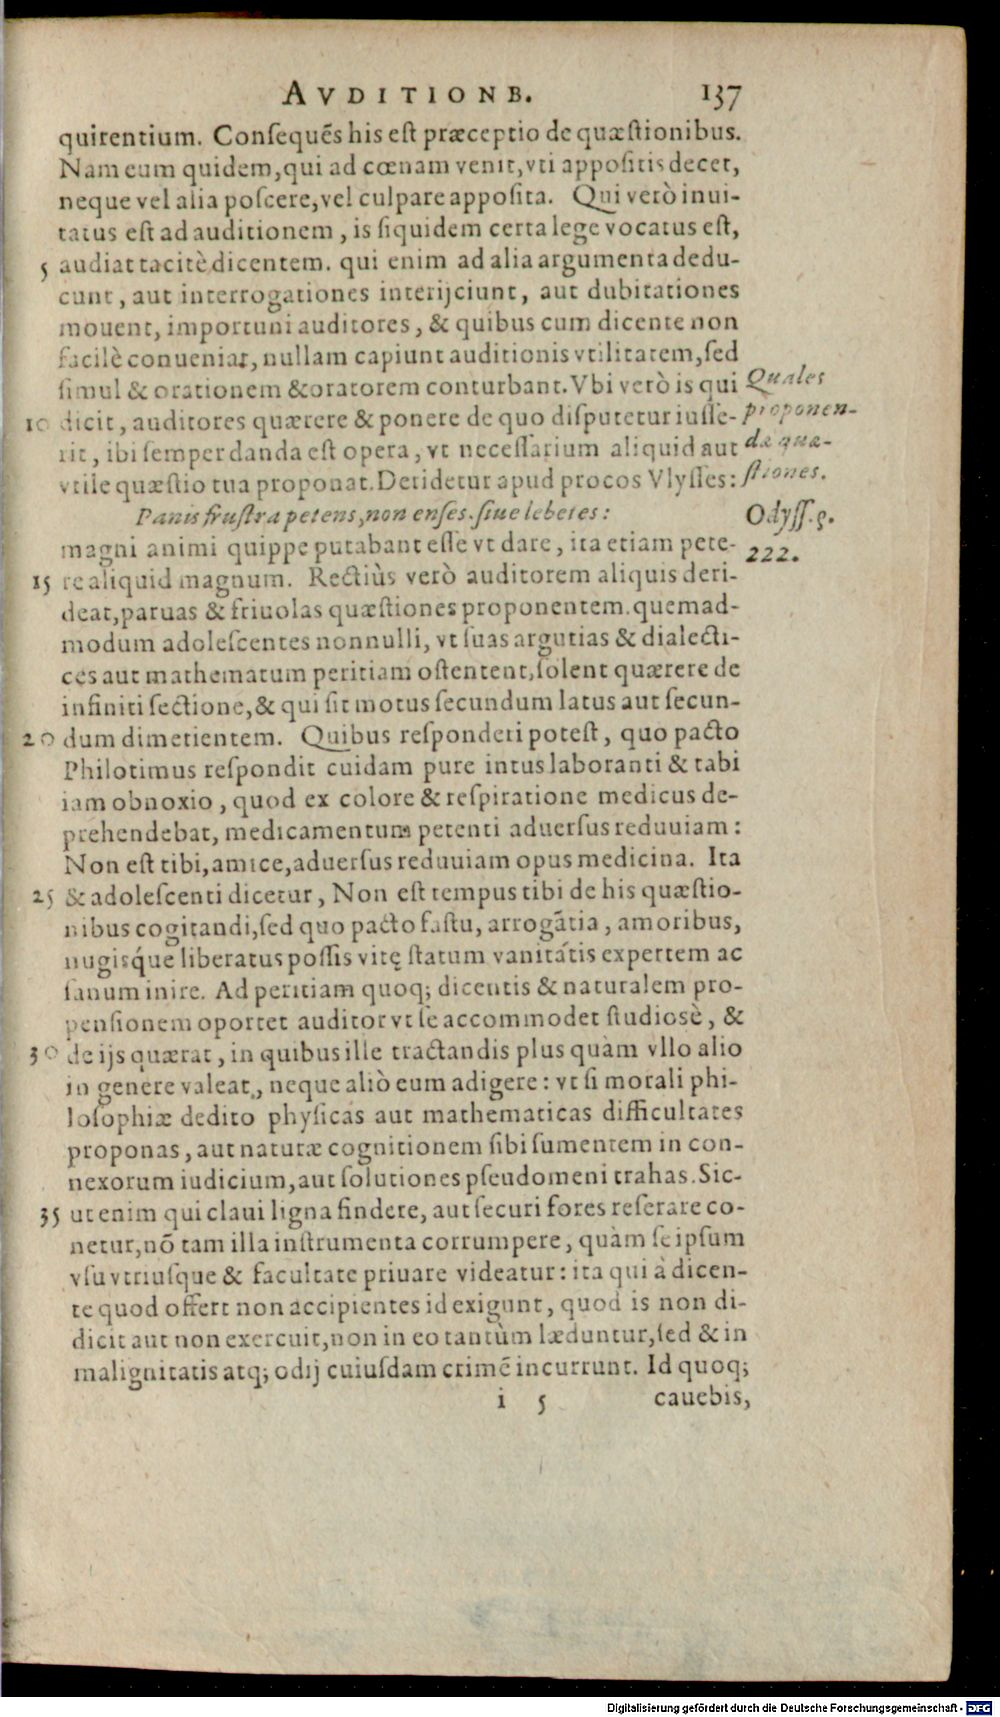 AVDITIONE. 137
quirentium. Consequẽs his est præceptio de quæstionibus.
Nam eum quidem, qui ad cœnam venit, vti appositis decet,
neque vel alia poscere, vel culpare apposita. Qui verò inui-
tatus est ad auditionem, is siquidem certa lege vocatus est,
5 audiat tacitè dicentem. qui enim ad alia argumenta dedu-
cunt, aut interrogationes interijciunt, aut dubitationes
mouent, importuni auditores, & quibus cum dicente non
facilè conueniat, nullam capiunt auditionis vtilitatem, sed
simul & orationem & oratorem conturbant. Vbi verò is qui Quales
10 dicit, auditores quærere & ponere de quo disputetur iusse- proponen-
rit, ibi semper danda est opera, vt necessarium aliquid aut dæ quæ-
vtile quæstio tua proponat. Deridetur apud procos Vlysses: stiones.
Panis frustra petens, non enses. siue lebetes: Odyss. ς.
magni animi quippe putabant esse vt dare, ita etiam pete- 222.
15 re aliquid magnum. Rectiùs verò auditorem aliquis deri-
deat, paruas & friuolas quæstiones proponentem. quemad-
modum adolescentes nonnulli, vt suas argutias & dialecti-
ces aut mathematum peritiam ostentent, solent quærere de
infiniti sectione, & qui sit motus secundum latus aut secun-
20 dum dimetientem. Quibus responderi potest, quo pacto
Philotimus respondit cuidam pure intus laboranti & tabi
iam obnoxio, quod ex colore & respiratione medicus de-
prehendebat, medicamentum petenti aduersus reduuiam:
Non est tibi, amice, aduersus reduuiam opus medicina. Ita
25 & adolescenti dicetur, Non est tempus tibi de his quæstio-
nibus cogitandi, sed quo pacto fastu, arrogãtia, amoribus,
nugisq́ue liberatus possis vitę statum vanitátis expertem ac
sanum inire. Ad peritiam quoq; dicentis & naturalem pro-
pensionem oportet auditor vt se accommodet studiosè, &
30 de ijs quærat, in quibus ille tractandis plus quàm vllo alio
in genere valeat, neque aliò eum adigere: vt si morali phi-
losophiæ dedito physicas aut mathematicas difficultates
proponas, aut naturæ cognitionem sibi sumentem in con-
nexorum iudicium, aut solutiones pseudomeni trahas. Sic-
35 ut enim qui claui ligna findere, aut securi fores reserare co-
netur, nõ tam illa instrumenta corrumpere, quàm se ipsum
vsu vtriusque & facultate priuare videatur: ita qui à dicen-
te quod offert non accipientes id exigunt, quod is non di-
dicit aut non exercuit, non in eo tantùm læduntur, sed & in
malignitatis atq; odij cuiusdam crimẽ incurrunt. Id quoq;
i 5 cauebis,
Digitalisierung gefördert durch die Deutsche Forschungsgemeinschaft - DFG